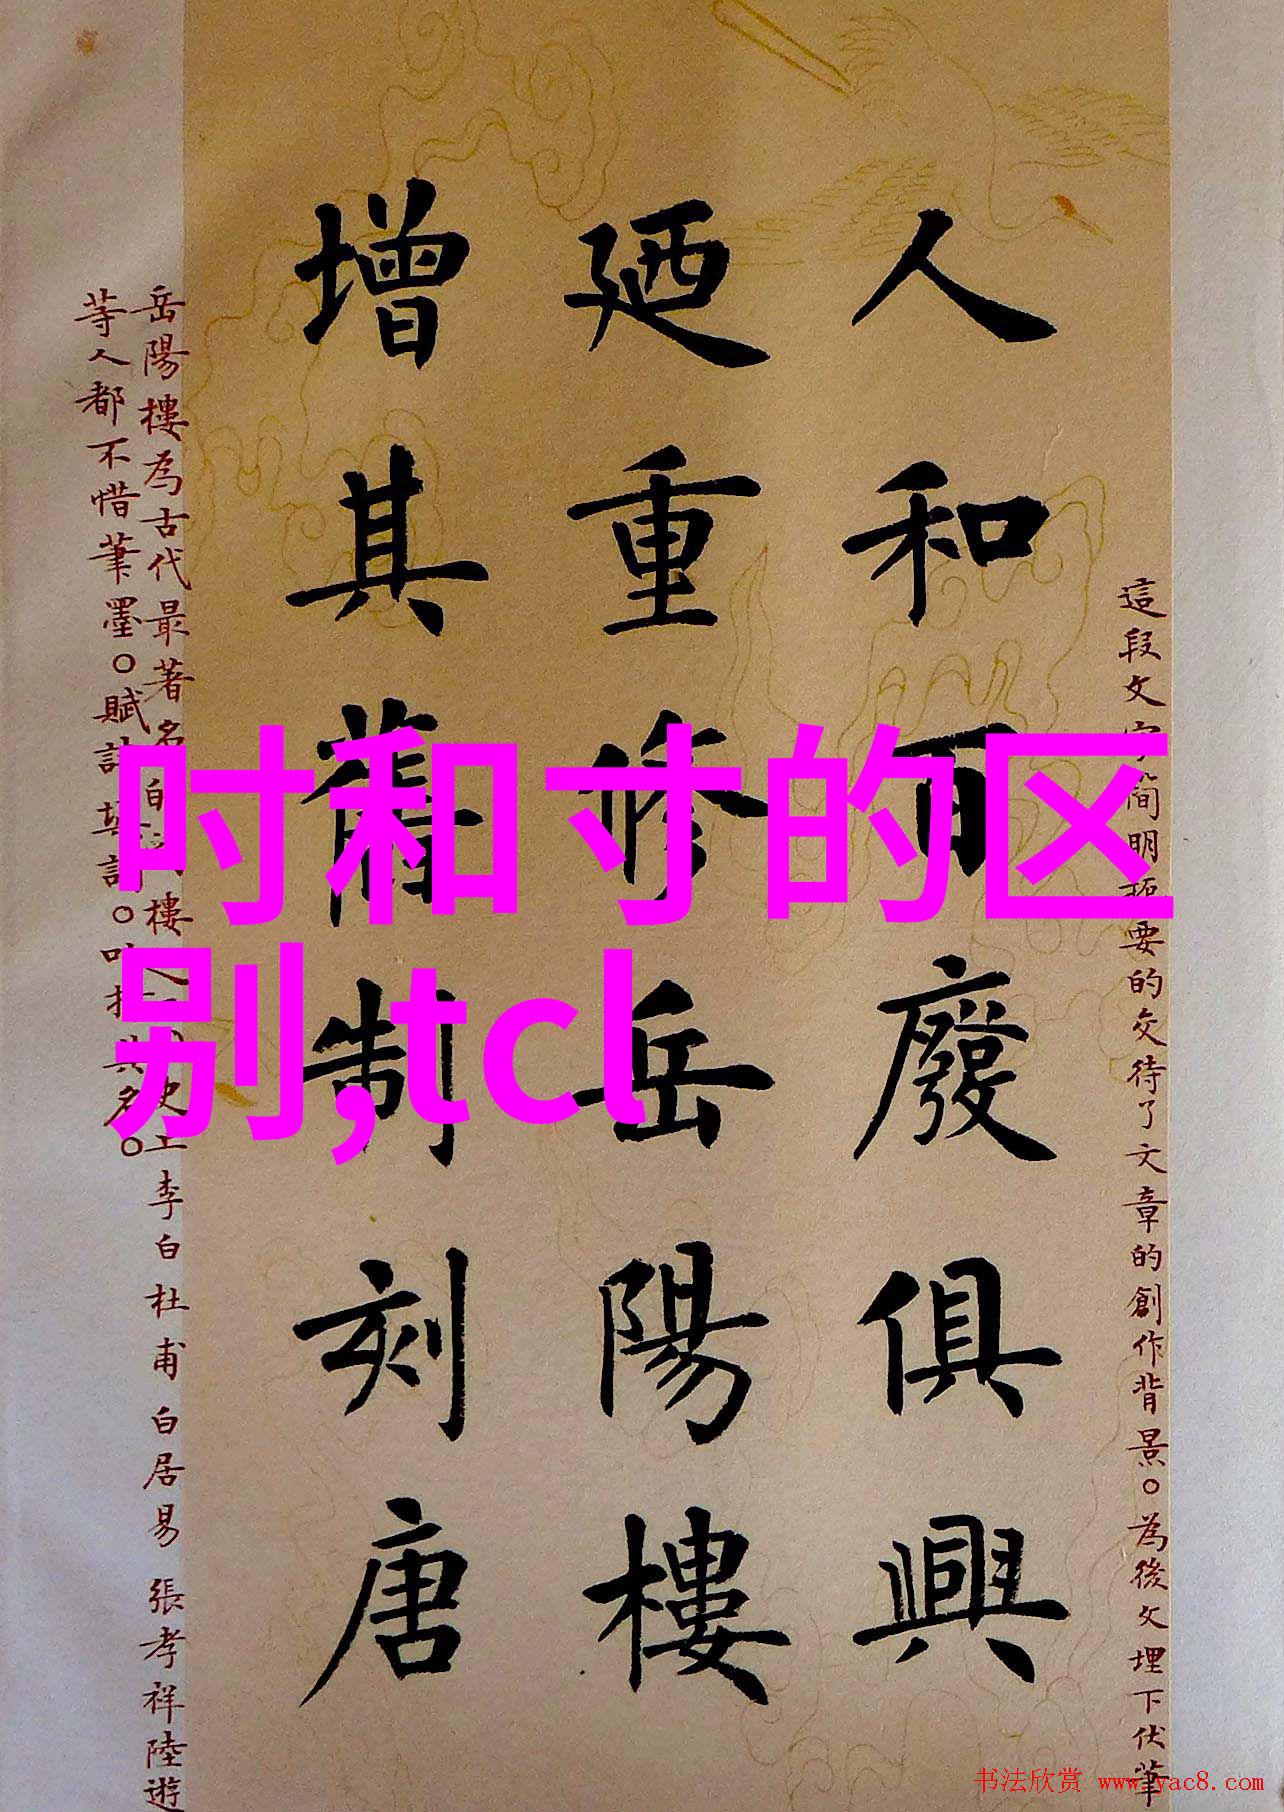 這段文字簡明扼要的交待了文章的創作背景。為後文埋下伏筆
人和百廢俱興
廼重修岳陽樓
增其舊制刻唐
岳陽樓為古代最著名樓史上李白杜甫白居易張孝祥陸遊
等人都不惜筆墨。賦詩填詞。其名。
吋和寸的区
别,tcl
书法欣赏 www.yac8.com